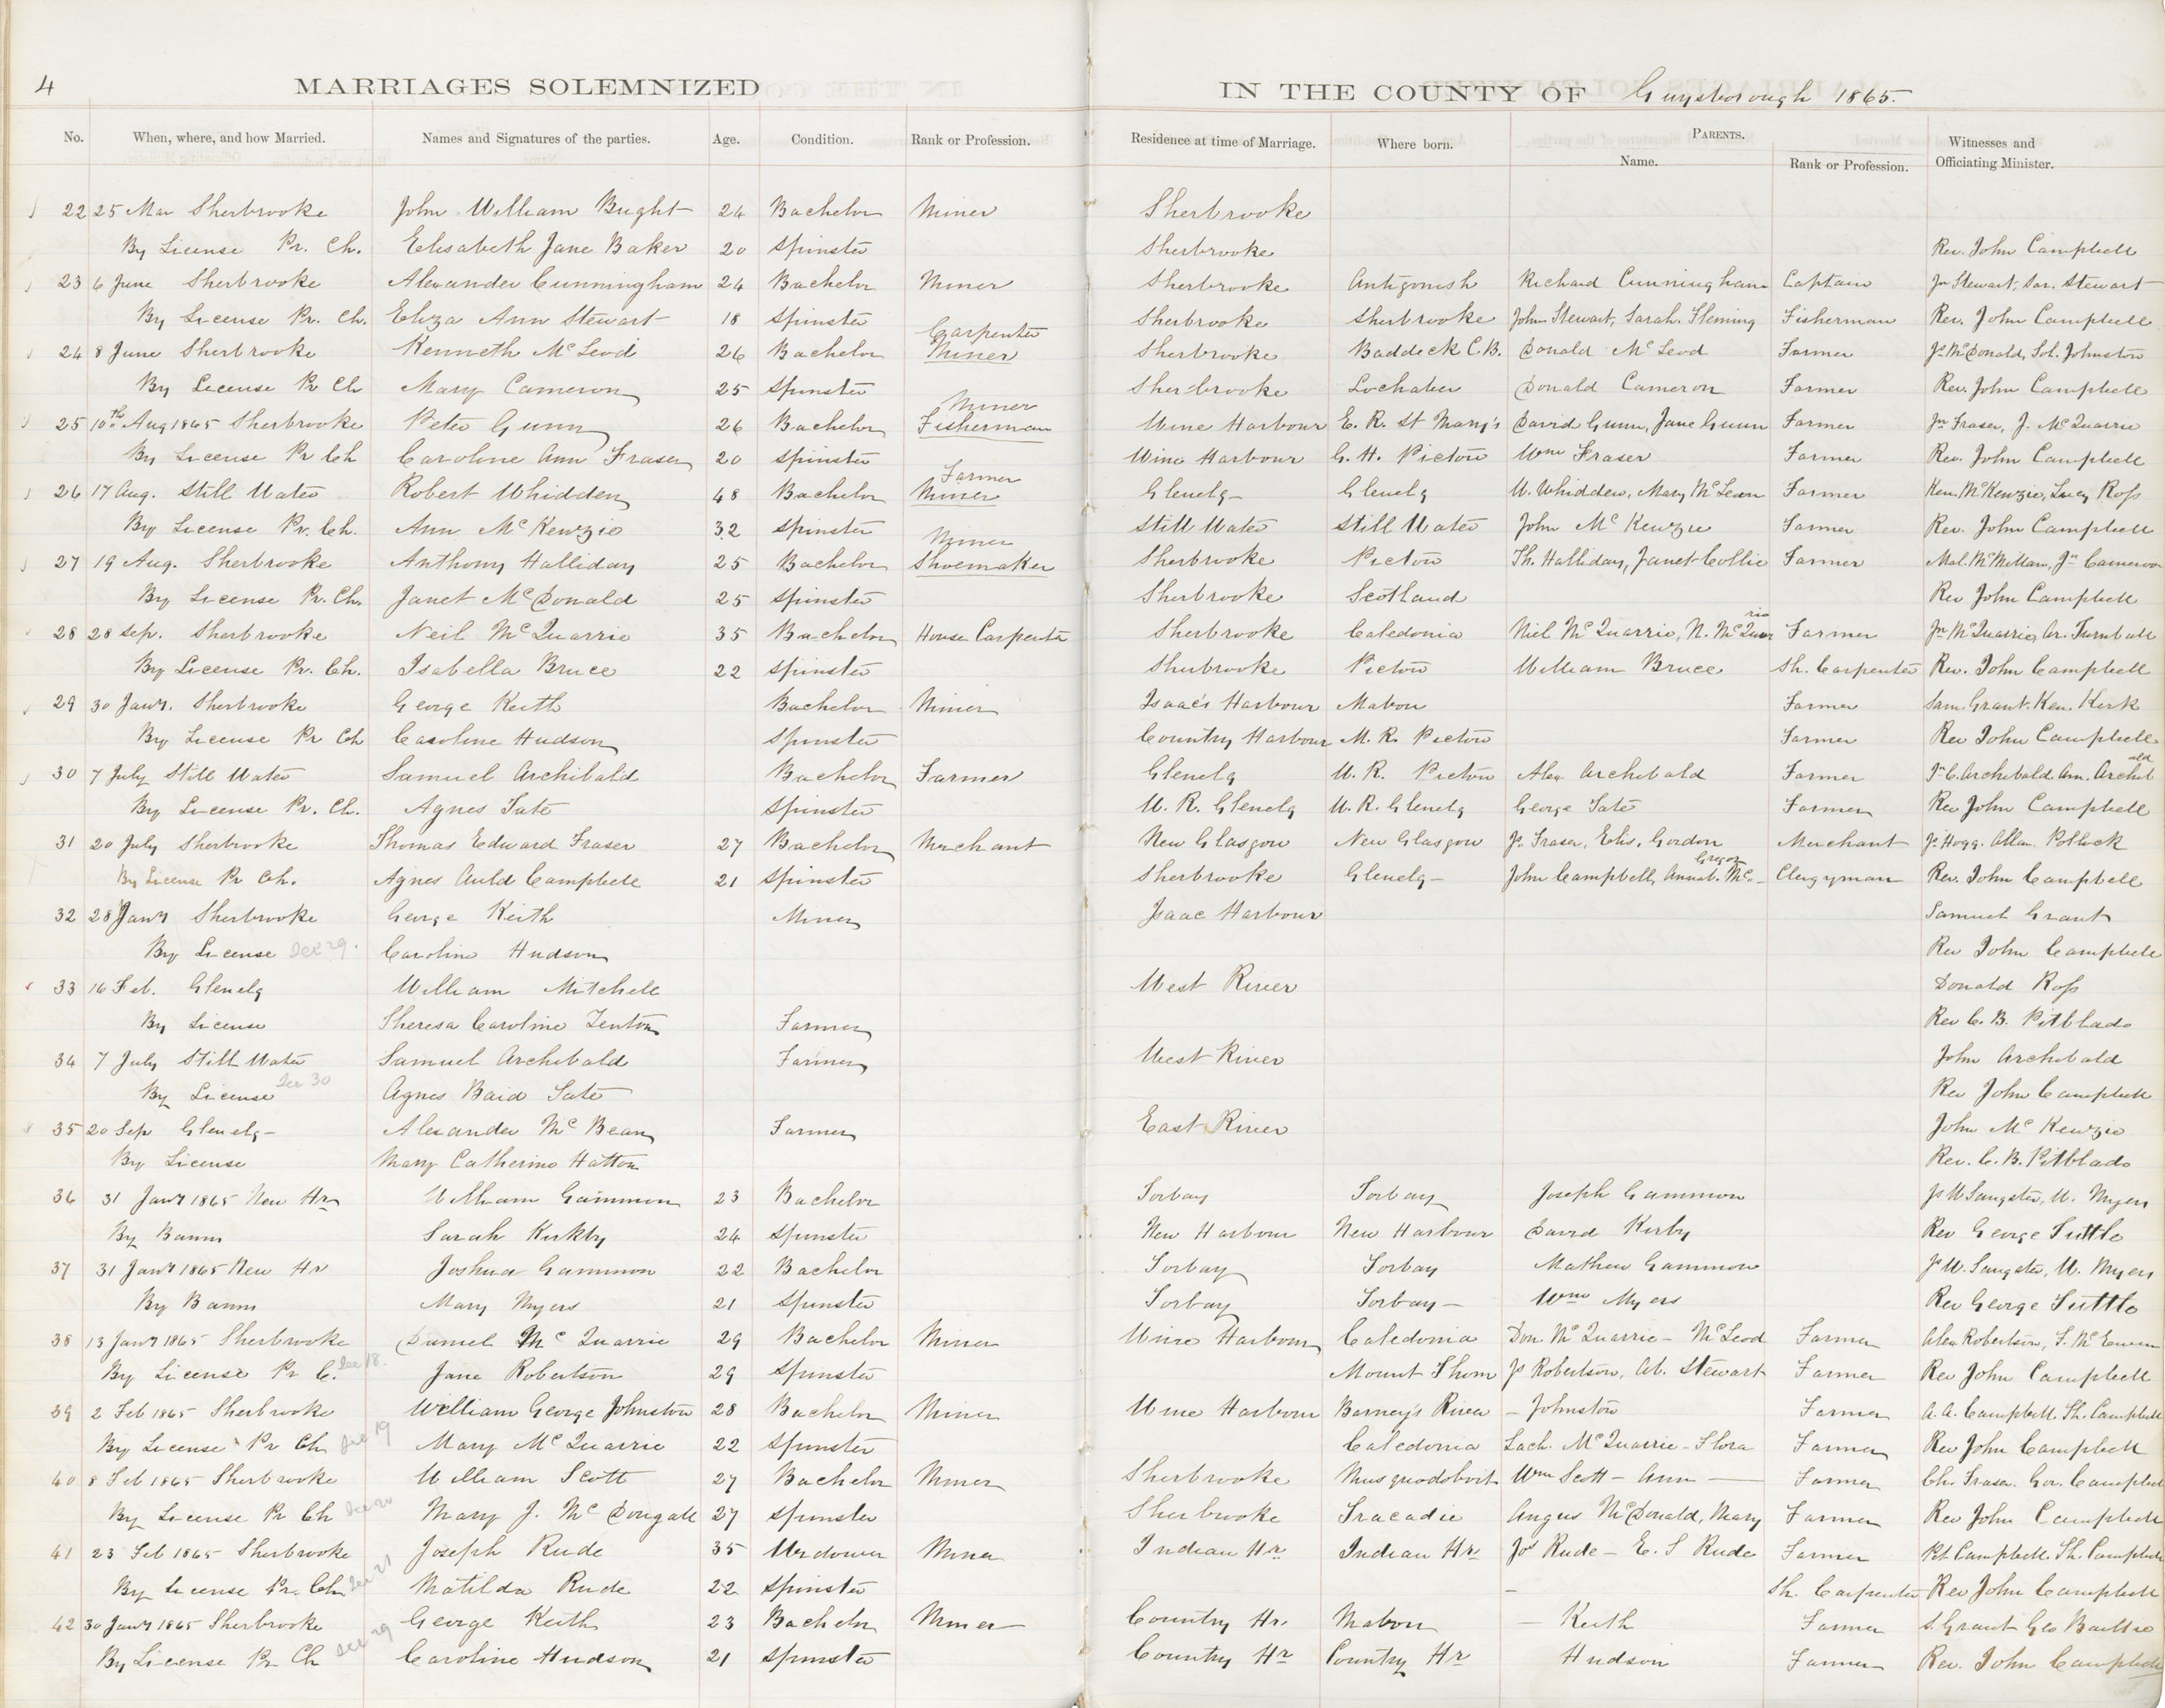 4 MARRIAGES SOLEMNIZED IN THE COUNTY OF Guysborough 1865.
No. When, where, and how Married. Names and Signatures of the parties. Age. Condition. Rank or Profession. Residence at time of Marriage. Where born. PARENTS. Name. Rank or Profession. Witnesses and Officiating Minister.
22 25 Mar Sherbrooke John William Bught 24 Bachelor Miner Sherbrooke
By License Pr. Ch. Elisabeth Jane Baker 20 Spinster Sherbrooke Rev. John Campbell
23 6 June Sherbrooke Alexander Cunningham 24 Bachelor Miner Sherbrooke Antigonish Richard Cunningham Captain Jn Stewart, Sar. Stewart
By License Pr. Ch. Eliza Ann Stewart 18 Spinster Sherbrooke Sherbrooke John Stewart, Sarah Fleming Fisherman Rev. John Campbell
24 8 June Sherbrooke Kenneth McLeod 26 Bachelor Carpenter Miner Sherbrooke Baddeck C.B. Donald McLeod Farmer Js McDonald, Sol. Johnston
By License Pr Ch Mary Cameron 25 Spinster Sherbrooke Lochaber Donald Cameron Farmer Rev. John Campbell
25 10th Aug 1865 Sherbrooke Peter Gunn 26 Bachelor Miner Fisherman Wine Harbour E. R. St Mary's David Gunn, Jane Gunn Farmer Jn Fraser, J. McQuarrie
By License Pr Ch Caroline Ann Fraser 20 Spinster Wine Harbour G. H. Pictou Wm Fraser Farmer Rev. John Campbell
26 17 Aug. Still Water Robert Whidden 48 Bachelor Farmer Miner Glenelg Glenelg W. Whidden, Mary McLean Farmer Ken. McKenzie, Lucy Ross
By License Pr. Ch. Ann McKenzie 32 Spinster Still Water Still Water John McKenzie Farmer Rev. John Campbell
27 19 Aug. Sherbrooke Anthony Halliday 25 Bachelor Miner Shoemaker Sherbrooke Pictou Th. Halliday, Janet Collie Farmer Mal. McMillan, Jn Cameron
By License Pr. Ch. Janet McDonald 25 Spinster Sherbrooke Scotland Rev John Campbell
28 28 Sep. Sherbrooke Neil McQuarrie 35 Bachelor House Carpenter Sherbrooke Caledonia Niel McQuarrie, N. McQuarrie Farmer Jn McQuarrie, Ar. Turnbull
By License Pr. Ch. Isabella Bruce 22 Spinster Sherbrooke Pictou William Bruce Sh. Carpenter Rev. John Campbell
29 30 Jany. Sherbrooke George Keith Bachelor Miner Isaac's Harbour Mabou Farmer Sam. Grant. Ken. Kirk
By License Pr Ch Caroline Hudson Spinster Country Harbour M. R. Pictou Farmer Rev John Campbell
30 7 July Still Water Samuel Archibald Bachelor Farmer Glenelg W. R. Pictou Alex Archibald Farmer J. C. Archibald. Am. Archibald
By License Pr. Ch. Agnes Tate Spinster W. R. Glenelg W. R. Glenelg George Tate Farmer Rev John Campbell
31 20 July Sherbrooke Thomas Edward Fraser 27 Bachelor Merchant New Glasgow New Glasgow Js. Fraser, Elis. Gordon Merchant Js Hogg. Allan Pollock
By License Pr Ch. Agnes Auld Campbell 21 Spinster Sherbrooke Glenelg John Campbell, Annab. McGregor Clergyman Rev. John Campbell
32 28 Jany Sherbrooke George Keith Miner Isaac Harbour Samuel Grant
By License Dec 29. Caroline Hudson Rev John Campbell
33 16 Feb. Glenelg William Mitchell West River Donald Ross
By License Theresa Caroline Fenton Farmer Rev C. B. Pitblado
34 7 July Still Water Samuel Archibald Farmer West River John Archibald
By License Dec 30 Agnes Baid Tate Rev John Campbell
35 20 Sep Glenelg Alexander McBean Farmer East River John McKenzie
By License Mary Catherine Hatton Rev. C. B. Pitblado
36 31 Jany 1865 New Hr William Gammon 23 Bachelor Torbay Torbay Joseph Gammon Js W Sangster, W. Myers
By Banns Sarah Kirkby 24 Spinster New Harbour New Harbour David Kirby Rev George Tuttle
37 31 Jany 1865 New Hr Joshua Gammon 22 Bachelor Torbay Torbay Mathew Gammon Js W. Sangster, W. Myers
By Banns Mary Myers 21 Spinster Torbay Torbay Wm Myers Rev George Tuttle
38 13 Jany 1865 Sherbrooke Daniel McQuarrie 29 Bachelor Miner Wine Harbour Caledonia Don. McQuarrie - McLeod Farmer Alex Robertson, F. McEwen
By License Pr C. Dec 18. Jane Robertson 29 Spinster Mount Thom Js Robertson, Ab. Stewart Farmer Rev John Campbell
39 2 Feb 1865 Sherbrooke William George Johnston 28 Bachelor Miner Wine Harbour Barney's River - Johnston Farmer A. A. Campbell. Th. Campbell
By License Pr Ch Dec 19 Mary McQuarrie 22 Spinster Caledonia Lach. McQuarrie - Flora Farmer Rev John Campbell
40 8 Feb 1865 Sherbrooke William Scott 27 Bachelor Miner Sherbrooke Musquodoboit Wm Scott - Ann Farmer Ch. Fraser. Gor. Campbell
By License Pr Ch Dec 20 Mary J. McDougall 27 Spinster Sherbrooke Tracadie Angus McDonald, Mary Farmer Rev John Campbell
41 23 Feb 1865 Sherbrooke Joseph Rude 35 Widower Miner Indian Hr Indian Hr Jos Rude - E. S Rude Farmer Rt Campbell. Th. Campbell
By License Pr. Ch Dec 21 Matilda Rude 22 Spinster - Sh. Carpenter Rev John Campbell
42 30 Jany 1865 Sherbrooke George Keith 23 Bachelor Miner Country Hr. Mabou - Keith Farmer S. Grant Geo Baillie
By License Pr Ch Dec 29 Caroline Hudson 21 Spinster Country Hr Country Hr Hudson Farmer Rev. John Campbell